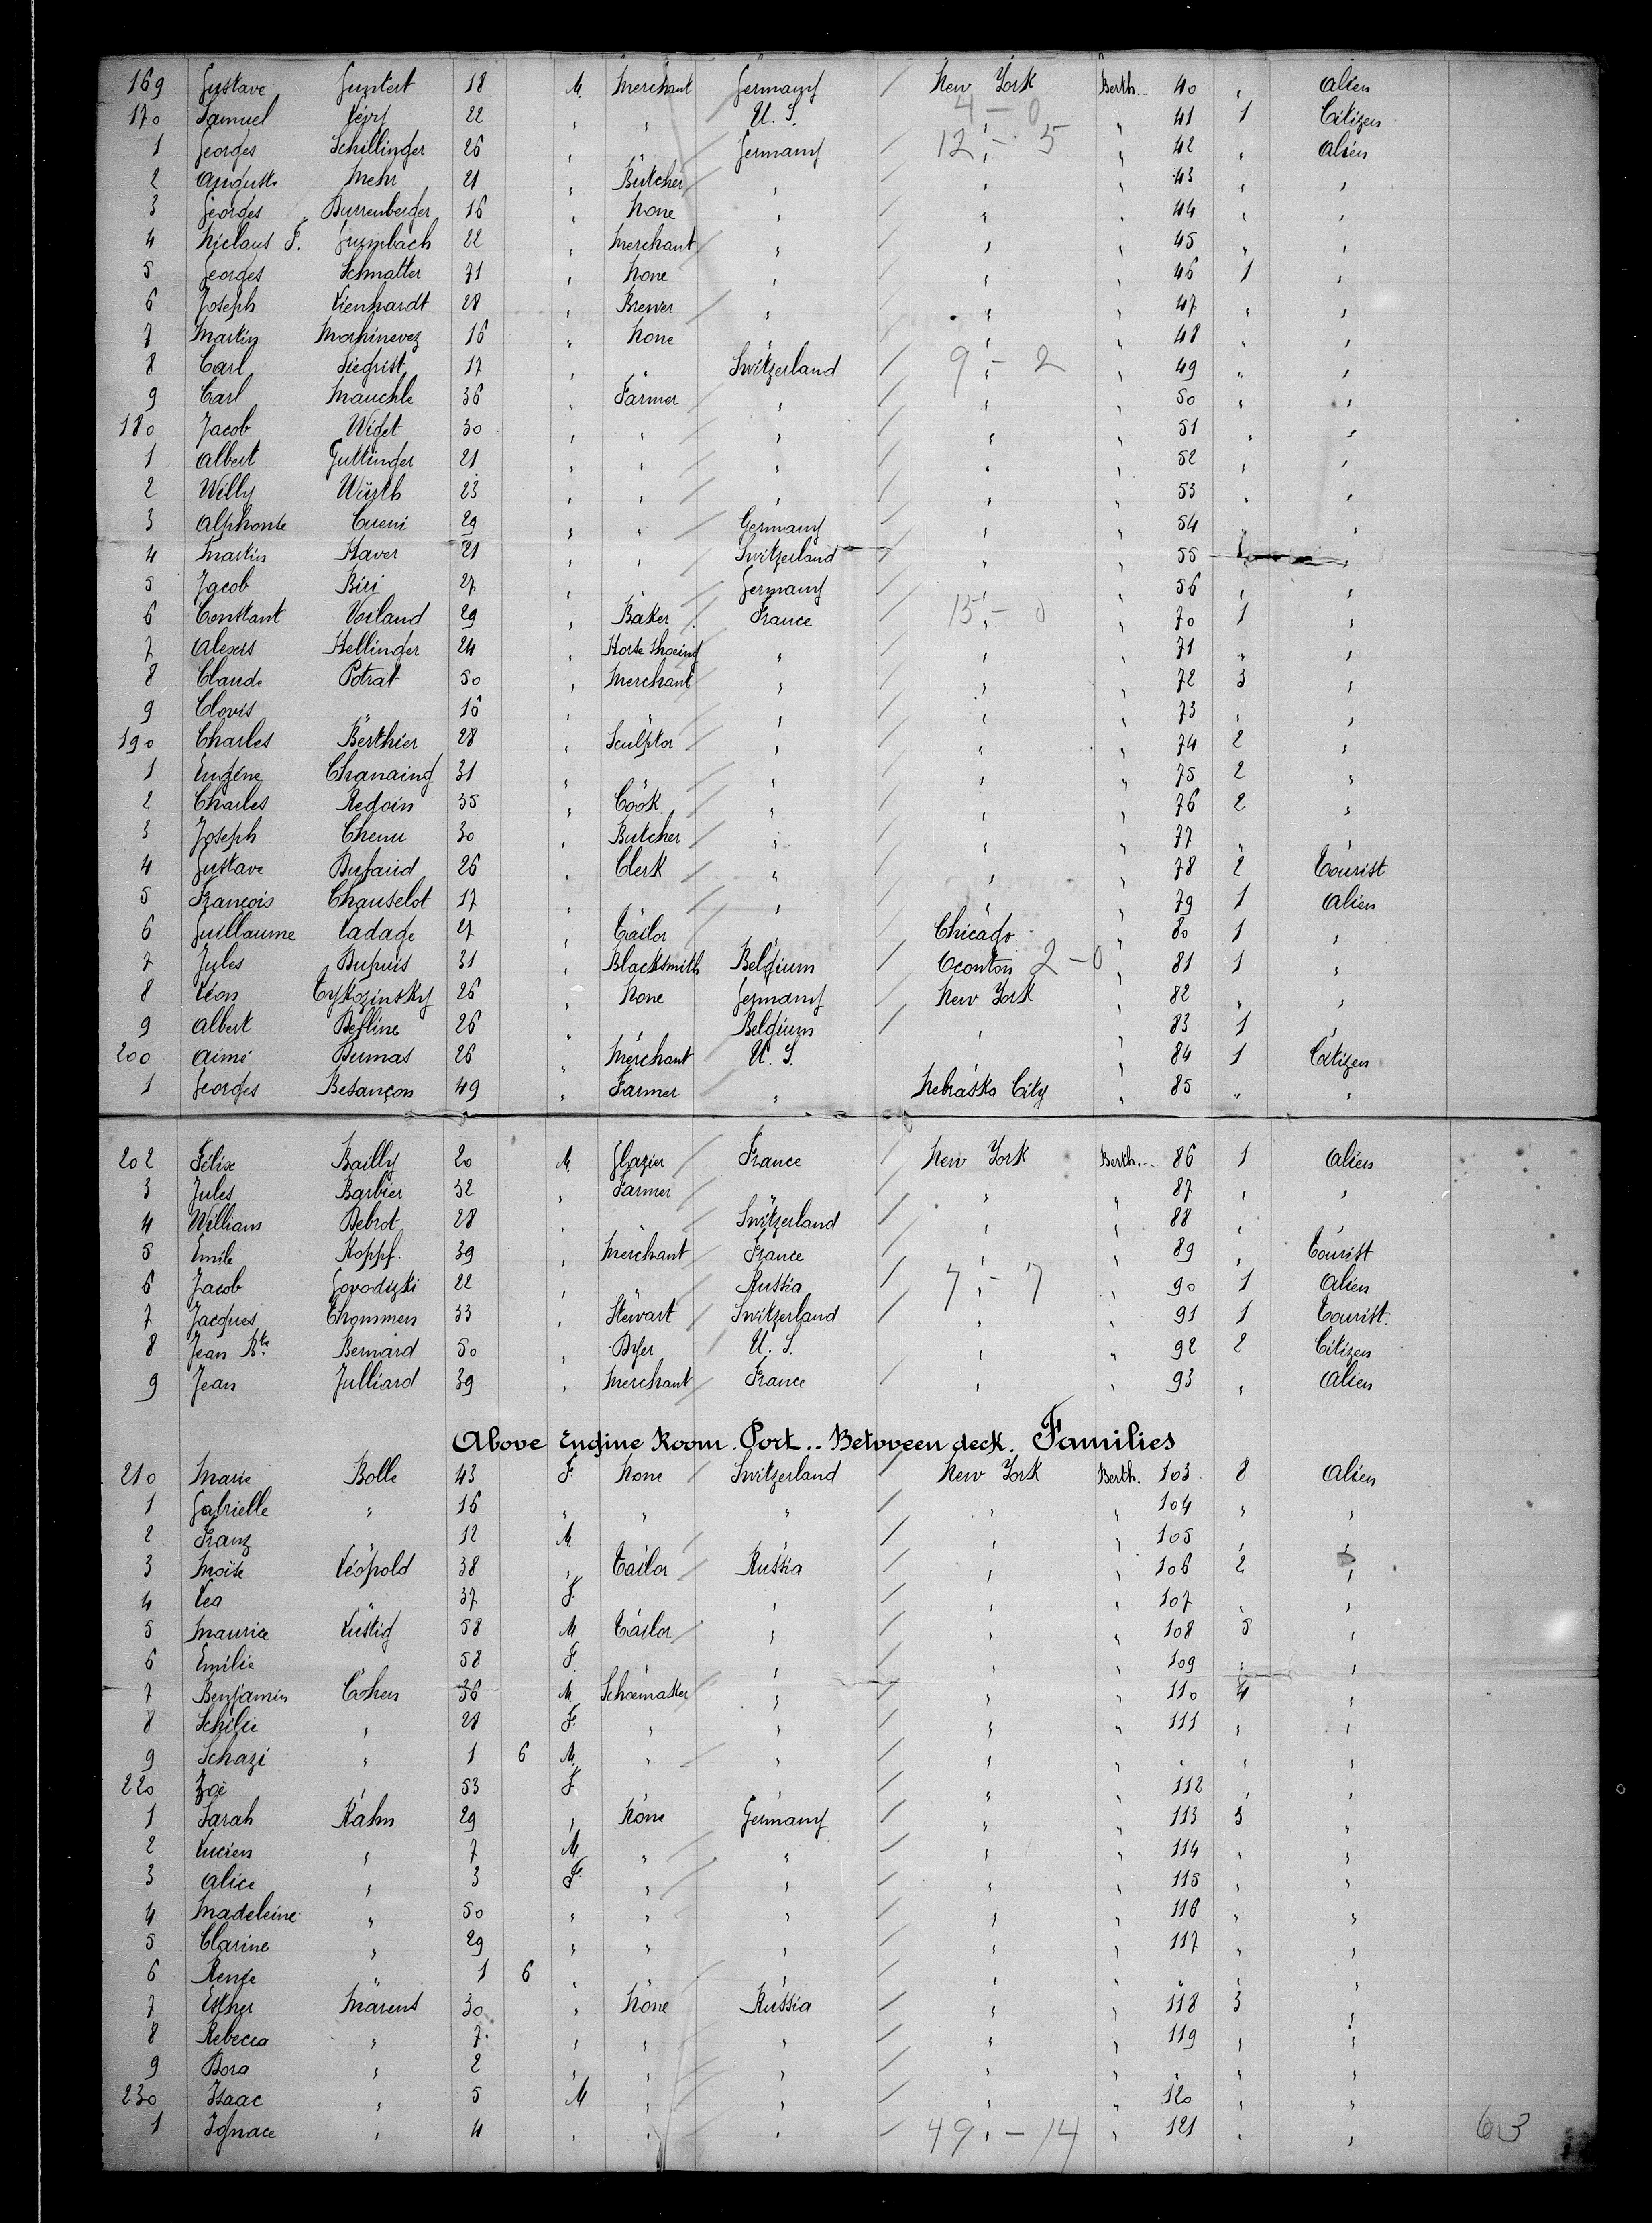 169 Gustave Guntert 18 M. Merchant Germany / New York Berth. 40 " Alien
170 Samuel Lévy 22 " " U. S. 4 - 0 " " 41 1 Citizen
1 Georges Schillinger 26 " " Germany / 12 - 5 " " 42 " Alien
2 Auguste Mehr 21 " Butcher / " / " " 43 " "
3 Georges Burrenberger 16 " None " / " " 44 " "
4 Niclaus F. Grumbach 22 " Merchant / " / " " 45 " "
5 Georges Schmalter 71 " None " / " " 46 1 "
6 Joseph Lienhardt 28 " Brewer / " / " " 47 " "
7 Martin 16 " None " / " " 48 " "
8 Carl Siegrist 17 " " Switzerland / 9 - 2 " " 49 " "
9 Carl Mauchle 36 " Farmer / " / " " 50 " "
180 Jacob Widet 30 " " / " / " " 51 " "
1 Albert Guttinger 21 " " / " / " " 52 " "
2 Willy Würth 23 " " / " / " " 53 " "
3 Alphonse Cueni 29 " " / Germany / " " 54 " "
4 Martin Haver 21 " " / Switzerland / " " 55 " "
5 Jacob Biri 27 " " / Germany / " " 56 " "
6 Constant Voiland 29 " Baker / France / 15 - 0 " " 70 1 "
7 Alexis Hellinger 24 " Horse Shoeing " / " " 71 " "
8 Claude Potrat 50 " Merchant / " / " " 72 3 "
9 Clovis " 16 " " " / " " 73 " "
190 Charles Berthier 28 " Sculptor / " / " " 74 2 "
1 Eugène Chanaing 31 " " / " / " " 75 2 "
2 Charles Redoin 35 " Cook / " / " " 76 2 "
3 Joseph Chenu 30 " Butcher / " / " " 77 " "
4 Gustave Dufaud 26 " Clerk / " / " " 78 2 Tourist
5 François Chauselot 17 " " / " / " " 79 1 Alien
6 Guillaume Ladage 27 " Tailor / " Chicago " 80 1 "
7 Jules Dupuis 31 " Blacksmith Belgium / 2 - 0 " 81 1 "
8 Léon Tykozinsky 26 " None Germany / New York " 82 " "
9 Albert Defline 26 " " Belgium / " " 83 1 "
200 Aimé Dumas 26 " Merchant U. S. " " 84 1 Citizen
1 Georges Besançon 49 " Farmer " Nebraska City " 85 " "
202 Félix Bailly 20 M. Glazier / France / New York Berth. 86 1 Alien
3 Jules Barbier 32 " Farmer / " / " " 87 " "
4 William Debrot 28 " " / Switzerland / " " 88 " "
5 Emile Kopff. 39 " Merchant / France / " " 89 " Tourist
6 Jacob Govodizki 22 " " / Russia / 7 - 7 " " 90 1 Alien
7 Jacques Thommen 33 " Stewart / Switzerland / " " 91 1 Tourist.
8 Jean Bte Bernard 50 " Dyer / U. S. " " 92 2 Citizen
9 Jean Julliard 39 " Merchant / France / " " 93 " Alien
Above Engine Room. Port.. Between deck. Families
210 Marie Bolle 43 F None Switzerland / New York Berth. 103 8 Alien
1 Gabrielle " 16 " " " / " " 104 " "
2 Franz " 12 M " " / " " 105 " "
3 Moïse Léopold 38 " Tailor / Russia / " " 106 2 "
4 Lea " 37 F. " " / " " 107 " "
5 Maurice Lustig 58 M Tailor / " / " " 108 5 "
6 Emilie " 58 F. " " / " " 109 " "
7 Benjamin Cohen 36 M Schoemaker " / " " 110 4 "
8 Schilie " 28 F. " / " / " " 111 " "
9 Schazi " 1 6 M " / " / " " " " "
220 Zoé " 53 F. " " / " " 112 " "
1 Sarah Kahn 29 " None Germany / " " 113 3 "
2 Lucien " 7 M " " / " " 114 " "
3 Alice " 3 F. " / " / " " 115 " "
4 Madeleine " 50 " " / " / " " 116 " "
5 Clarine " 29 " " / " / " " 117 " "
6 " 1 6 " " / " / " " " " "
7 Esther 30 " None Russia / " " 118 3 "
8 Rebecca " 7 " " / " / " " 119 " "
9 Dora " 2 " " / " / " " " " "
230 Isaac " 5 M " / " / " " 120 " "
1 Ignace " 4 " " / " / 49 - 14 " " 121 " "
63